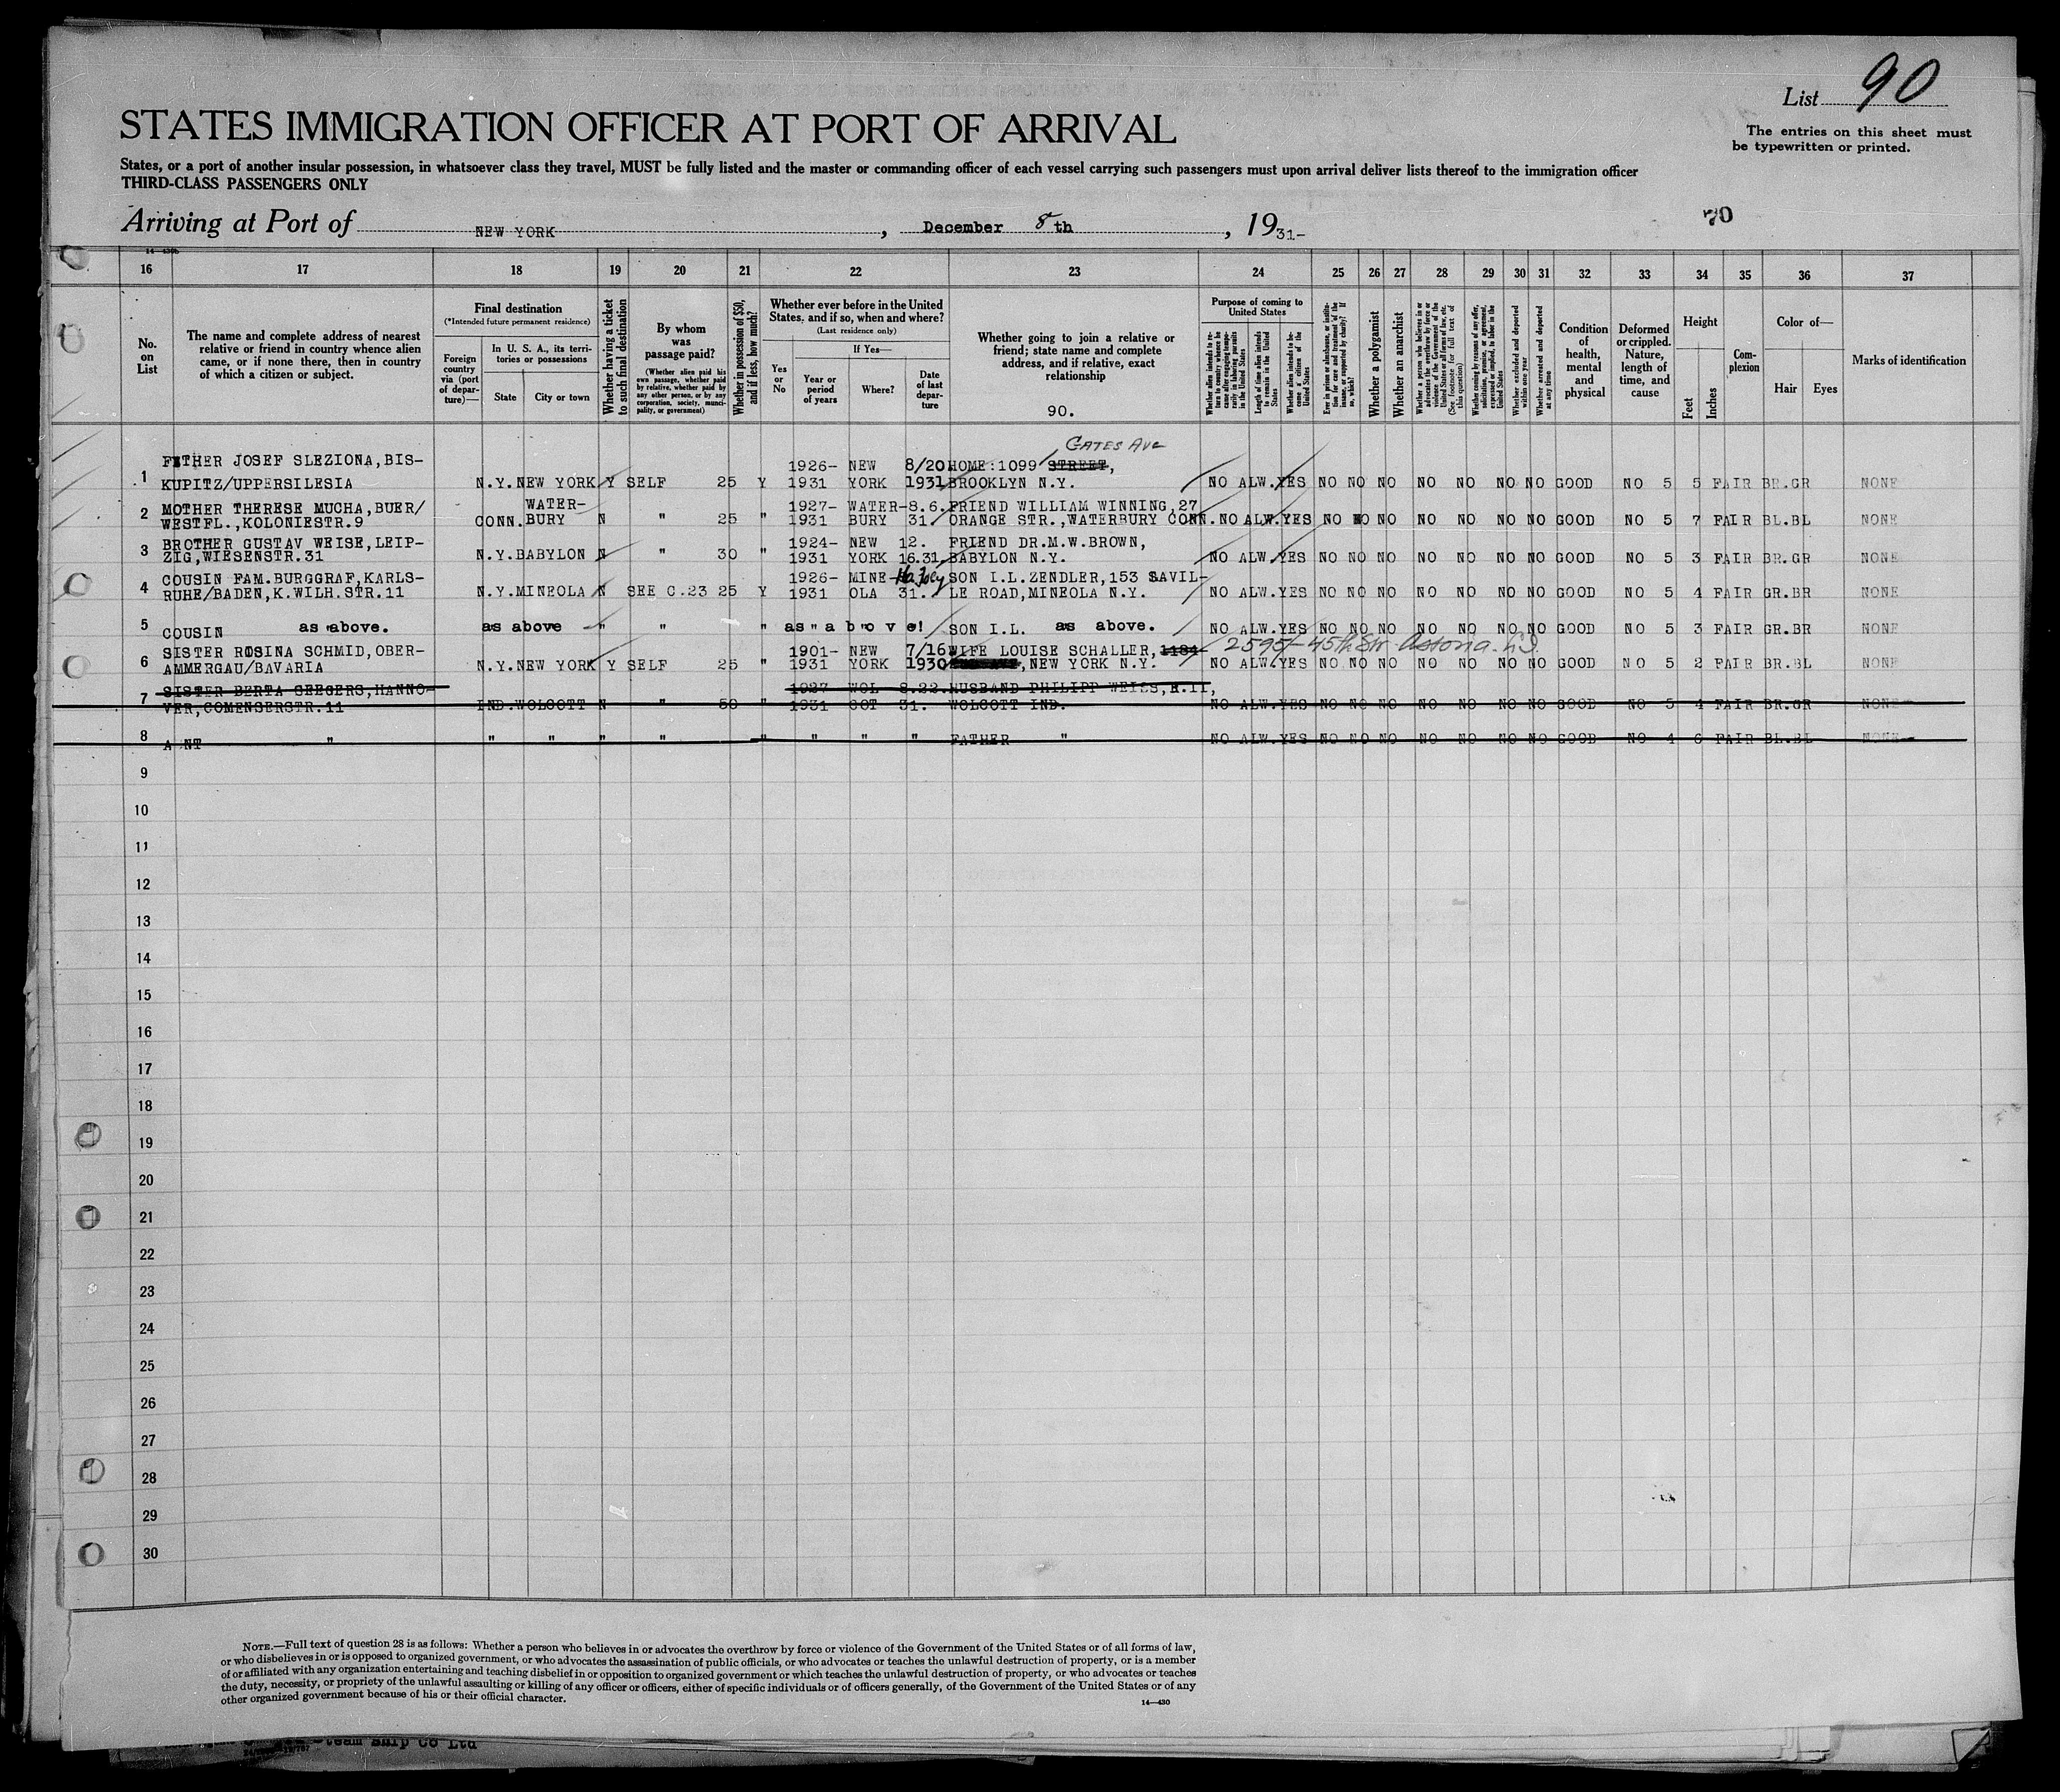 List 90
The entries on this sheet must
be typewritten or printed.
STATES IMMIGRATION OFFICER AT PORT OF ARRIVAL
States, or a port of another insular possession, in whatsoever class they travel, MUST be fully listed and the master or commanding officer of each vessel carrying such passengers must upon arrival deliver lists thereof to the immigration officer
THIRD-CLASS PASSENGERS ONLY
Arriving at Port of NEW YORK, December 8th, 1931-
70
16 17 18 19 20 21 22 23 24 25 26 27 28 29 30 31 32 33 34 35 36 37
No. on List
The name and complete address of nearest
relative or friend in country whence alien
came, or if none there, then in country
of which a citizen or subject.
Final destination
(*Intended future permanent residence)
Foreign
country
via (port
of depar-
ture)—
In U. S. A., its terri-
tories or possessions
State City or town
Whether having a ticket
to such final destination
By whom
was
passage paid?
(Whether alien paid his
own passage, whether paid
by relative, whether paid by
any other person, or by any
corporation, society, munici-
pality, or government)
Whether in possession of $50,
and if less, how much?
Whether ever before in the United
States, and if so, when and where?
(Last residence only)
Yes
or
No
If Yes—
Year or
period
of years
Where?
Date
of last
depar-
ture
Whether going to join a relative or
friend; state name and complete
address, and if relative, exact
relationship
90.
Purpose of coming to
United States
Whether alien intends to re-
turn to country whence he
came after engaging tempo-
rarily in laboring pursuits
in the United States
Length of time alien intends
to remain in the United
States
Whether alien intends to be-
come a citizen of the
United States
Ever in prison or almshouse, or institu-
tion for care and treatment of the
insane, or supported by charity? If
so, which?
Whether a polygamist
Whether an anarchist
Whether a person who believes in or
advocates the overthrow by force or
violence of the Government of the
United States or all forms of law, etc.
(See footnote for full text of
this question)
Whether coming by reasons of any offer,
solicitation, promise, or agreement,
expressed or implied, to labor in the
United States
Whether excluded and deported
within one year
Whether arrested and deported
at any time
Condition
of
health,
mental
and
physical
Deformed
or crippled.
Nature,
length of
time, and
cause
Height
Feet Inches
Com-
plexion
Color of—
Hair Eyes
Marks of identification
GATES AVE
FATHER JOSEF SLEZIONA,BIS- 1926- NEW 8/20 HOME:1099 STREET,
1 KUPITZ/UPPERSILESIA N.Y. NEW YORK Y SELF 25 Y 1931 YORK 1931 BROOKLYN N.Y. NO ALW. YES NO NO NO NO NO NO NO GOOD NO 5 5 FAIR BR.GR NONE
MOTHER THERESE MUCHA,BUER/ WATER- 1927- WATER- 8.6. FRIEND WILLIAM WINNING,27
2 WESTFL.,KOLONIESTR.9 CONN. BURY N " 25 " 1931 BURY 31. ORANGE STR.,WATERBURY CONN. NO ALW. YES NO NO NO NO NO NO NO GOOD NO 5 7 FAIR BL.BL NONE
BROTHER GUSTAV WEISE,LEIP- 1924- NEW 12. FRIEND DR.M.W.BROWN,
3 ZIG,WIESENSTR.31 N.Y. BABYLON N " 30 " 1931 YORK 16.31. BABYLON N.Y. NO ALW. YES NO NO NO NO NO NO NO GOOD NO 5 3 FAIR BR.GR NONE
COUSIN FAM.BURGGRAF,KARLS- 1926- MINE- July SON I.L.ZENDLER,153 SAVIL-
4 RUHE/BADEN,K.WILH.STR.11 N.Y. MINEOLA N SEE C.23 25 Y 1931 OLA 31. LE ROAD,MINEOLA N.Y. NO ALW. YES NO NO NO NO NO NO NO GOOD NO 5 4 FAIR GR.BR NONE
5 COUSIN as above. as above " " " as above! SON I.L. as above. NO ALW. YES NO NO NO NO NO NO NO GOOD NO 5 3 FAIR GR.BR NONE
SISTER ROSINA SCHMID,OBER- 1901- NEW 7/16 WIFE LOUISE SCHALLER, 1184 2595-45th Str Astoria. L.I.
6 AMMERGAU/BAVARIA N.Y. NEW YORK Y SELF 25 " 1931 YORK 1930 ,NEW YORK N.Y. NO ALW. YES NO NO NO NO NO NO NO GOOD NO 5 2 FAIR BR.BL NONE
SISTER BERTA SEEGERS,HANNO- 1927 WOL 8.22. HUSBAND PHILIPP WEISS,R.II,
7 VER,COMENSERSTR.11 IND. WOLCOTT N " 50 " 1931 COT 31. WOLCOTT IND. NO ALW. YES NO NO NO NO NO NO NO GOOD NO 5 4 FAIR BR.GR NONE
8 A NT " " " " " " " " " FATHER " NO ALW. YES NO NO NO NO NO NO NO GOOD NO 4 6 FAIR BL.BL NONE
9
10
11
12
13
14
15
16
17
18
19
20
21
22
23
24
25
26
27
28
29
30
NOTE.—Full text of question 28 is as follows: Whether a person who believes in or advocates the overthrow by force or violence of the Government of the United States or of all forms of law,
or who disbelieves in or is opposed to organized government, or who advocates the assassination of public officials, or who advocates or teaches the unlawful destruction of property, or is a member
of or affiliated with any organization entertaining and teaching disbelief in or opposition to organized government or which teaches the unlawful destruction of property, or who advocates or teaches
the duty, necessity, or propriety of the unlawful assaulting or killing of any officer or officers, either of specific individuals or of officers generally, of the Government of the United States or of any
other organized government because of his or their official character.
14—430
Steam Ship Co Ltd